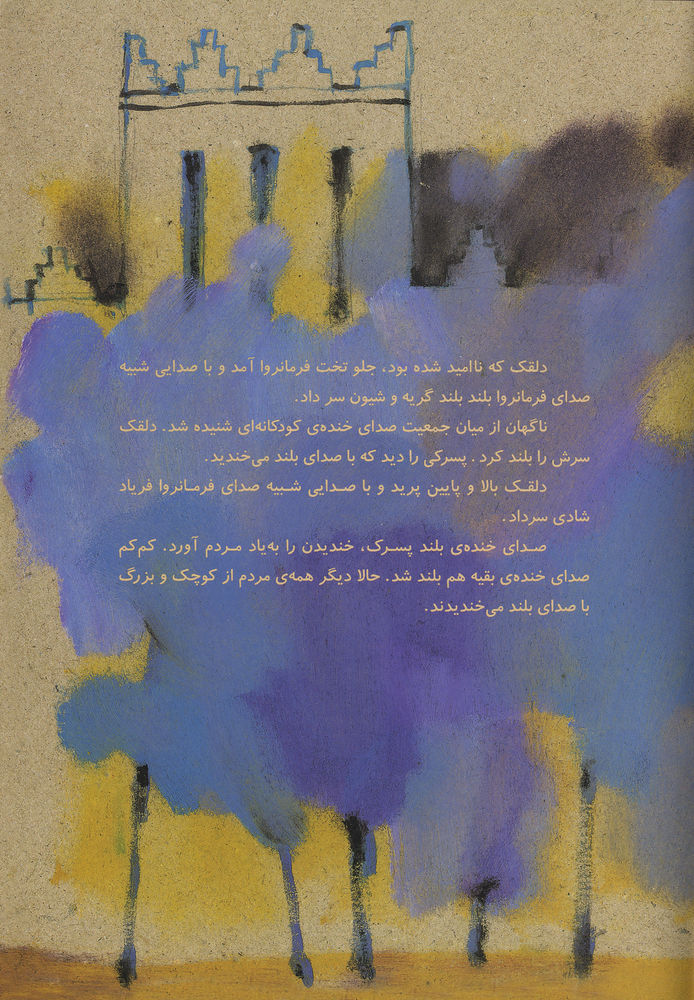 دلقک که ناامید شده بود، جلو تخت فرمانروا آمد و با صدایی شبیه
صدای فرمانروا بلند بلند گریه و شیون سر داد.
ناگهان از میان جمعیت صدای خنده‌ی کودکانه‌ای شنیده شد. دلقک
سرش را بلند کرد. پسرکی را دید که با صدای بلند می‌خندید.
دلقک بالا و پایین پرید و با صدایی شبیه صدای فرمانروا فریاد
شادی سرداد.
صدای خنده‌ی بلند پسرک، خندیدن را به‌یاد مردم آورد. کم‌کم
صدای خنده‌ی بقیه هم بلند شد. حالا دیگر همه‌ی مردم از کوچک و بزرگ
با صدای بلند می‌خندیدند.